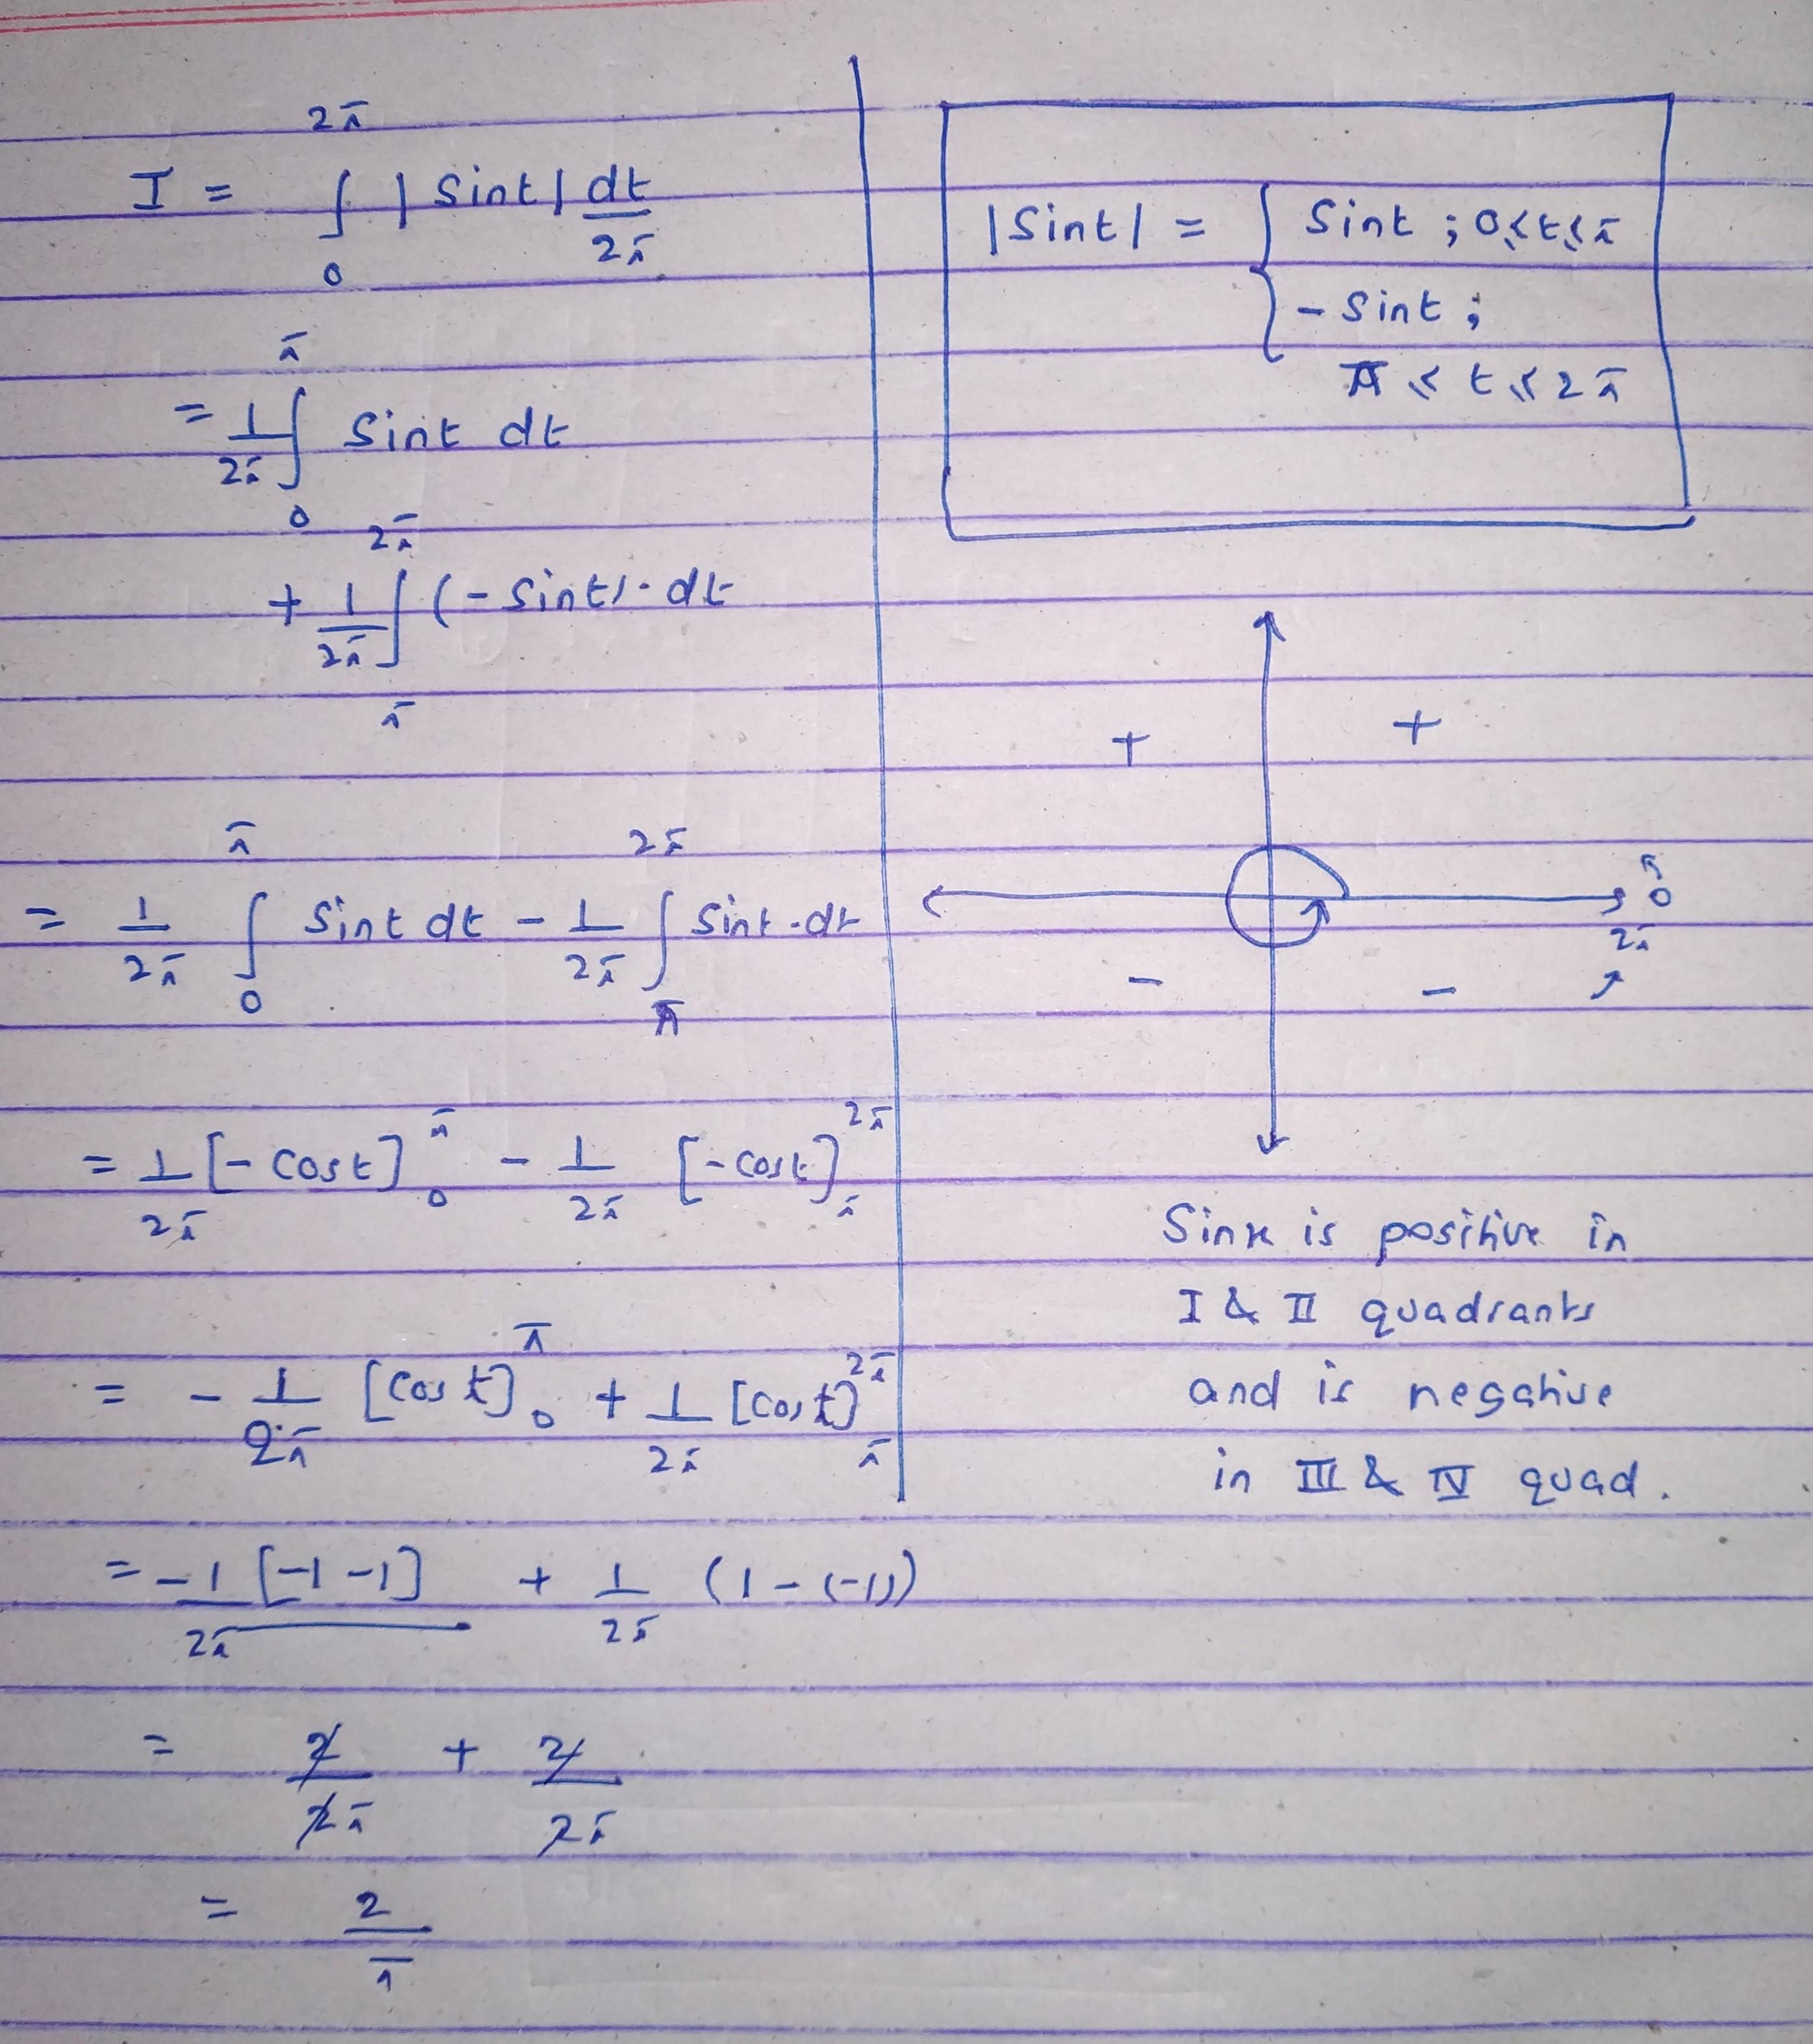 I = ∫₀^{2π} |Sint| dt/2π
= 1/2π ∫₀^{π} Sint dt
+ 1/2π ∫_{π}^{2π} (-Sint)·dt
= 1/2π ∫₀^{π} Sint dt - 1/2π ∫_{π}^{2π} Sint·dt
= 1/2π [-Cost]₀^{π} - 1/2π [-Cost]_{π}^{2π}
= - 1/2π [Cost]₀^{π} + 1/2π [Cost]_{π}^{2π}
= -1/2π [-1 -1] + 1/2π (1 - (-1))
= 2/2π + 2/2π
= 2/π
|Sint| = { Sint ; 0≤t≤π
-Sint ;
π ≤ t ≤ 2π
+ +
0
2π
- -
Sinx is positive in
I & II quadrants
and is negative
in III & IV quad.